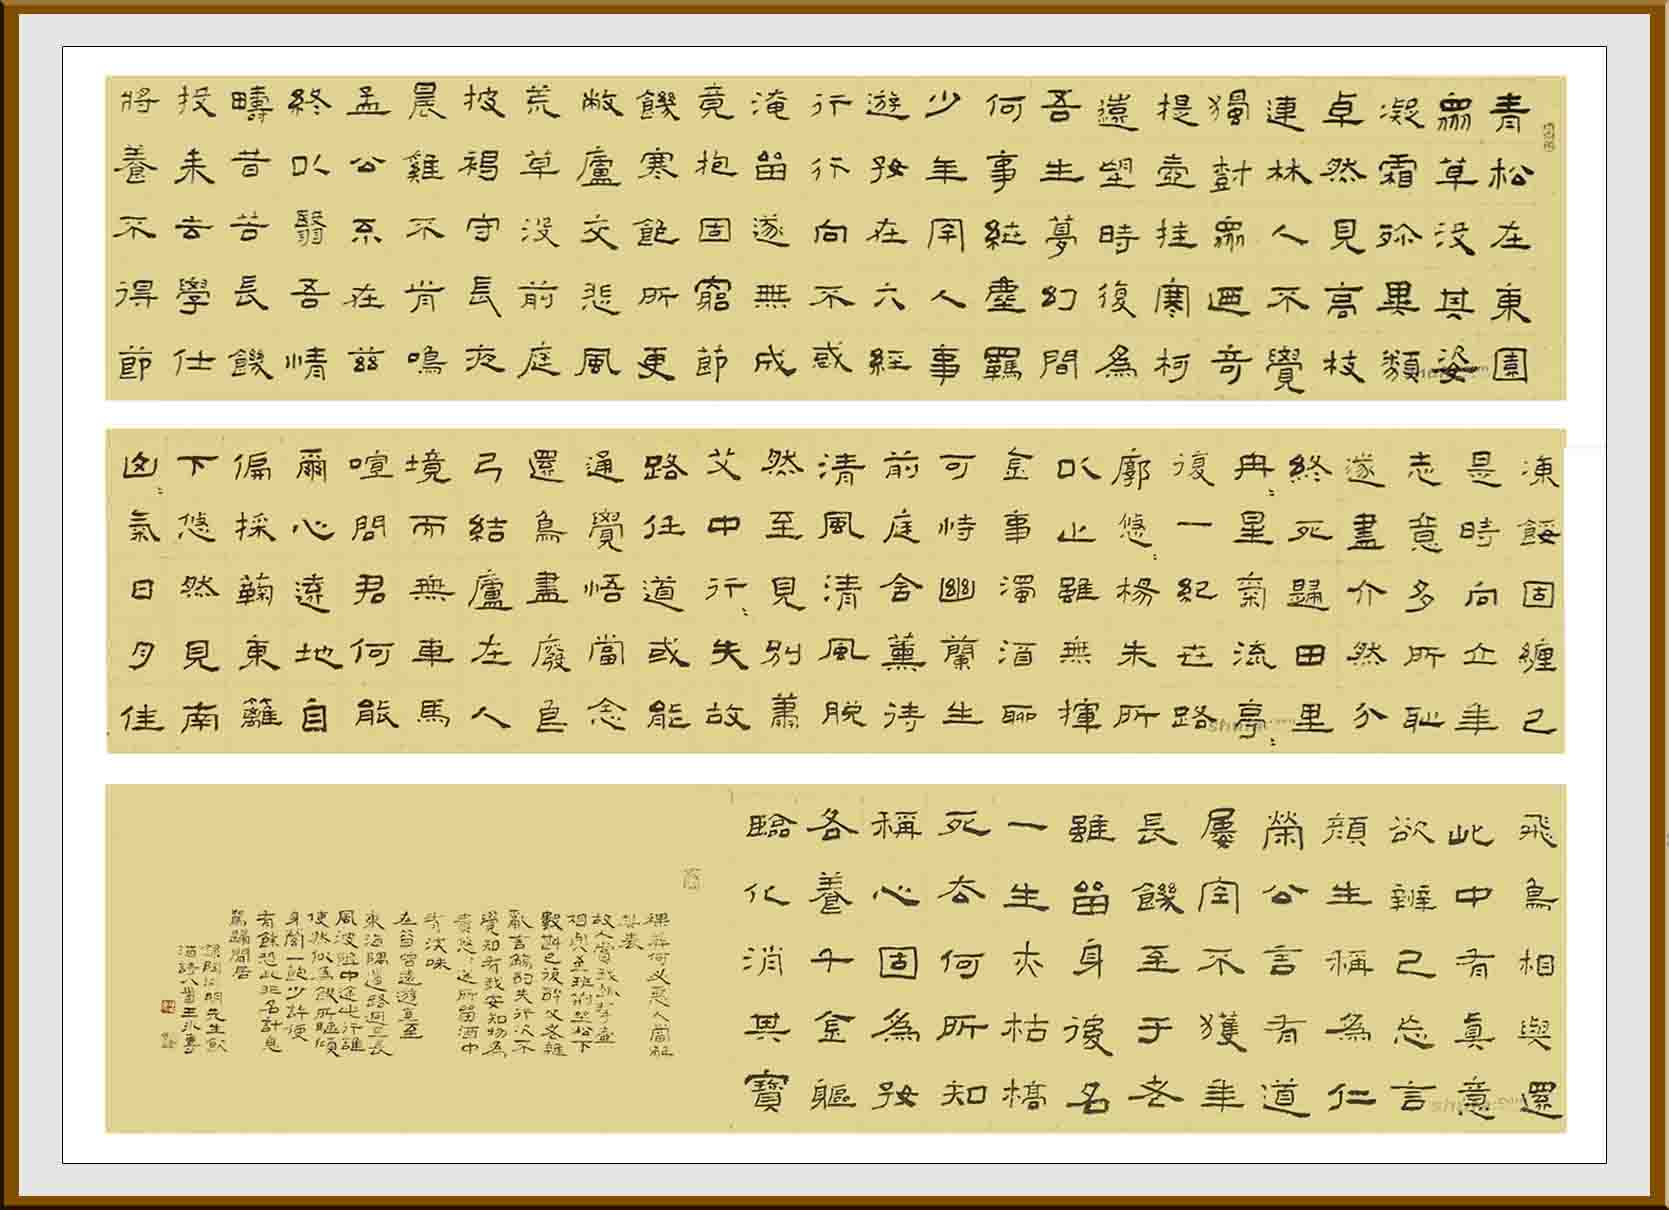 青松在東園
眾草没其姿
凝霜殄異類
卓然見高枝
連林人不覺
獨尌眾廼奇
提壺挂寒柯
遠望時復為
吾生夢幻間
何事紲塵羈
少年罕人事
遊好在六經
行行向不惑
淹留遂無成
竟抱固窮節
饑寒飽所更
敝廬交悲風
荒草没前庭
披褐守長夜
晨雞不肯鳴
孟公不在茲
終以翳吾情
疇昔苦長饑
投耒去學仕
將養不得節
凍餒固纏己
是時向立年
志意多所恥
遂盡介然分
終死歸田里
冉〻星氣流亭〻
復一紀世路
廓悠〻楊朱所
以止雖無揮
金事濁酒聊
可恃幽蘭生
前庭含薰待
清風清風脫
然至見別蕭
艾中行〻失故
路任道或能
通覺悟當念
還鳥盡廢良
弓結廬在人
境而無車馬
喧問君何能
爾心遠地自
偏採菊東籬
下悠然見南
山〻氣日夕佳
飛鳥相與還
此中有真意
欲辨已忘言
顏生稱為仁
榮公言有道
屢空不獲年
長饑至于老
雖留身後名
一生亦枯槁
死去何所知
稱心固為好
各養千金軀
臨化消其寶
裸葬何必惡人當解
其表
故人賞我趣挈壺
相與至班荊坐松下
數斟已復醉父老雜
亂言觴酌失行次不
覺知有我安知物為
貴悠〻迷所留酒中
有深味
在昔曾遠遊直至
東海隅道路迥且長
風波阻中塗此行誰
使然似為飢所驅傾
身營一飽少許便
有餘恐此非名計息
駕歸閒居
錄陶淵明先生飲
酒詩八首王